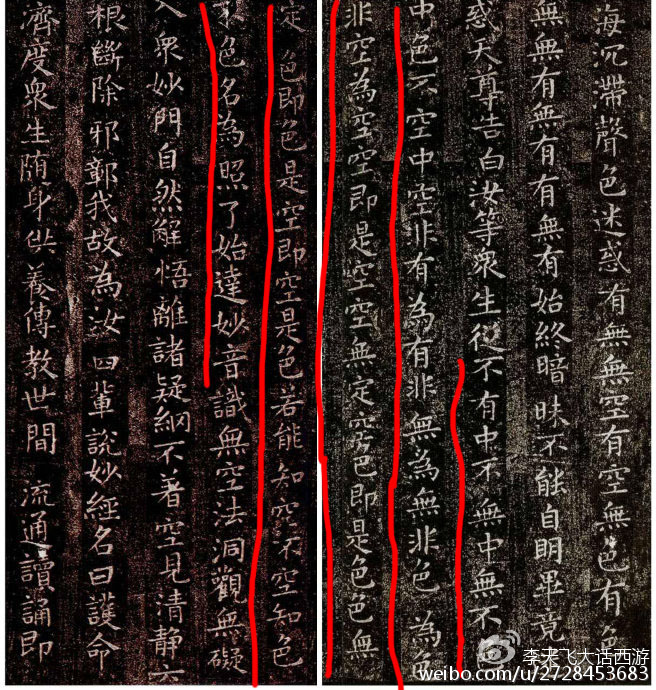 海沉滯聲色迷惑有無無空有空無色有色
無無有無有有無有始終暗昧不能自明畢竟
惑天尊告白汝等眾生從不有中不無中無不
中色不空中空非有為有非無為無非色為色
非空為空空即是空空無定空色即是色色無
定色即色是空即空是色若能知空不空知色
不色名為照了始達妙音識無空法洞觀無礙
入眾妙門自然解悟離諸疑網不著空見清静六
根斷除邪鄣我故為汝四輩說妙經名曰護命
濟度眾生随身供養傳教世間流通讀誦即
李来飞大话西游
weibo.com/u/2728453683